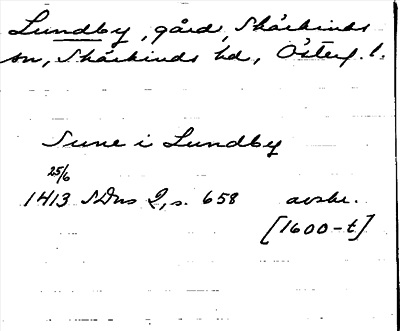 Lundby, gård, Skärkinds
sn, Skärkinds hd, Österg. l.
Sune i Lundby
25/6
1413 SDns 2, s. 658 avskr.
[1600-t]